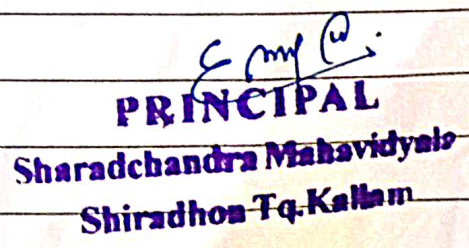 PRINCIPAL
Sharadchandra Mahavidyala
Shiradhon Tq.Kallam